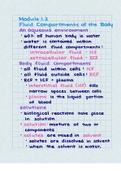 Module 1.2
Fluid Compartments of the Body
An aqueous environment
60% of human body is water
water is contained within
different fluid compartments:
intracellular fluid - ICF
extracellular fluid - ECF
Body fluid compartments
all fluid within cells: ICF
all fluid outside cells: ECF
ECF = ISF + plasma
interstitial fluid (ISF) fills
narrow spaces between cells
plasma is the liquid portion
of blood
solutions
biological reactions take place
in solution
solution: mixture of two or
components
solutes are mixed in solvent
solutes are dissolved in solvent
when the solvent is water,